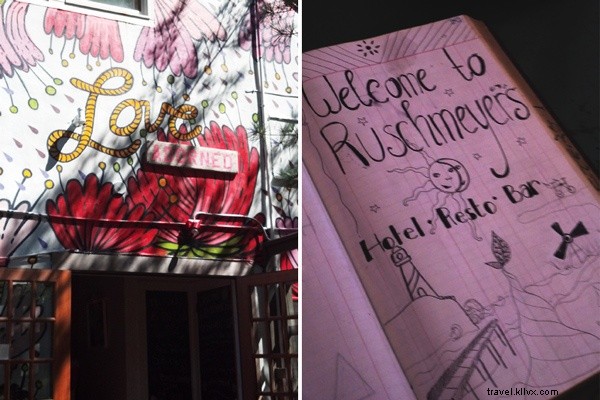 Love
Welcome to
Ruschmeyers
Hotel · Resto · Bar
travel.kllvx.com